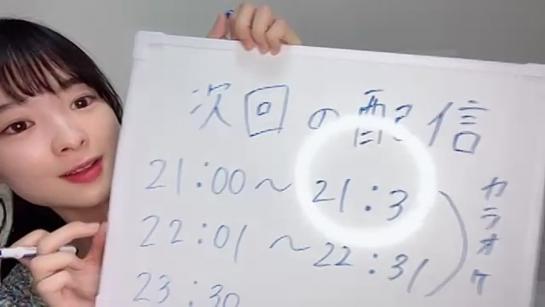 次回の配信
21:00～21:3
22:01～22:31
23:30
カラオケ